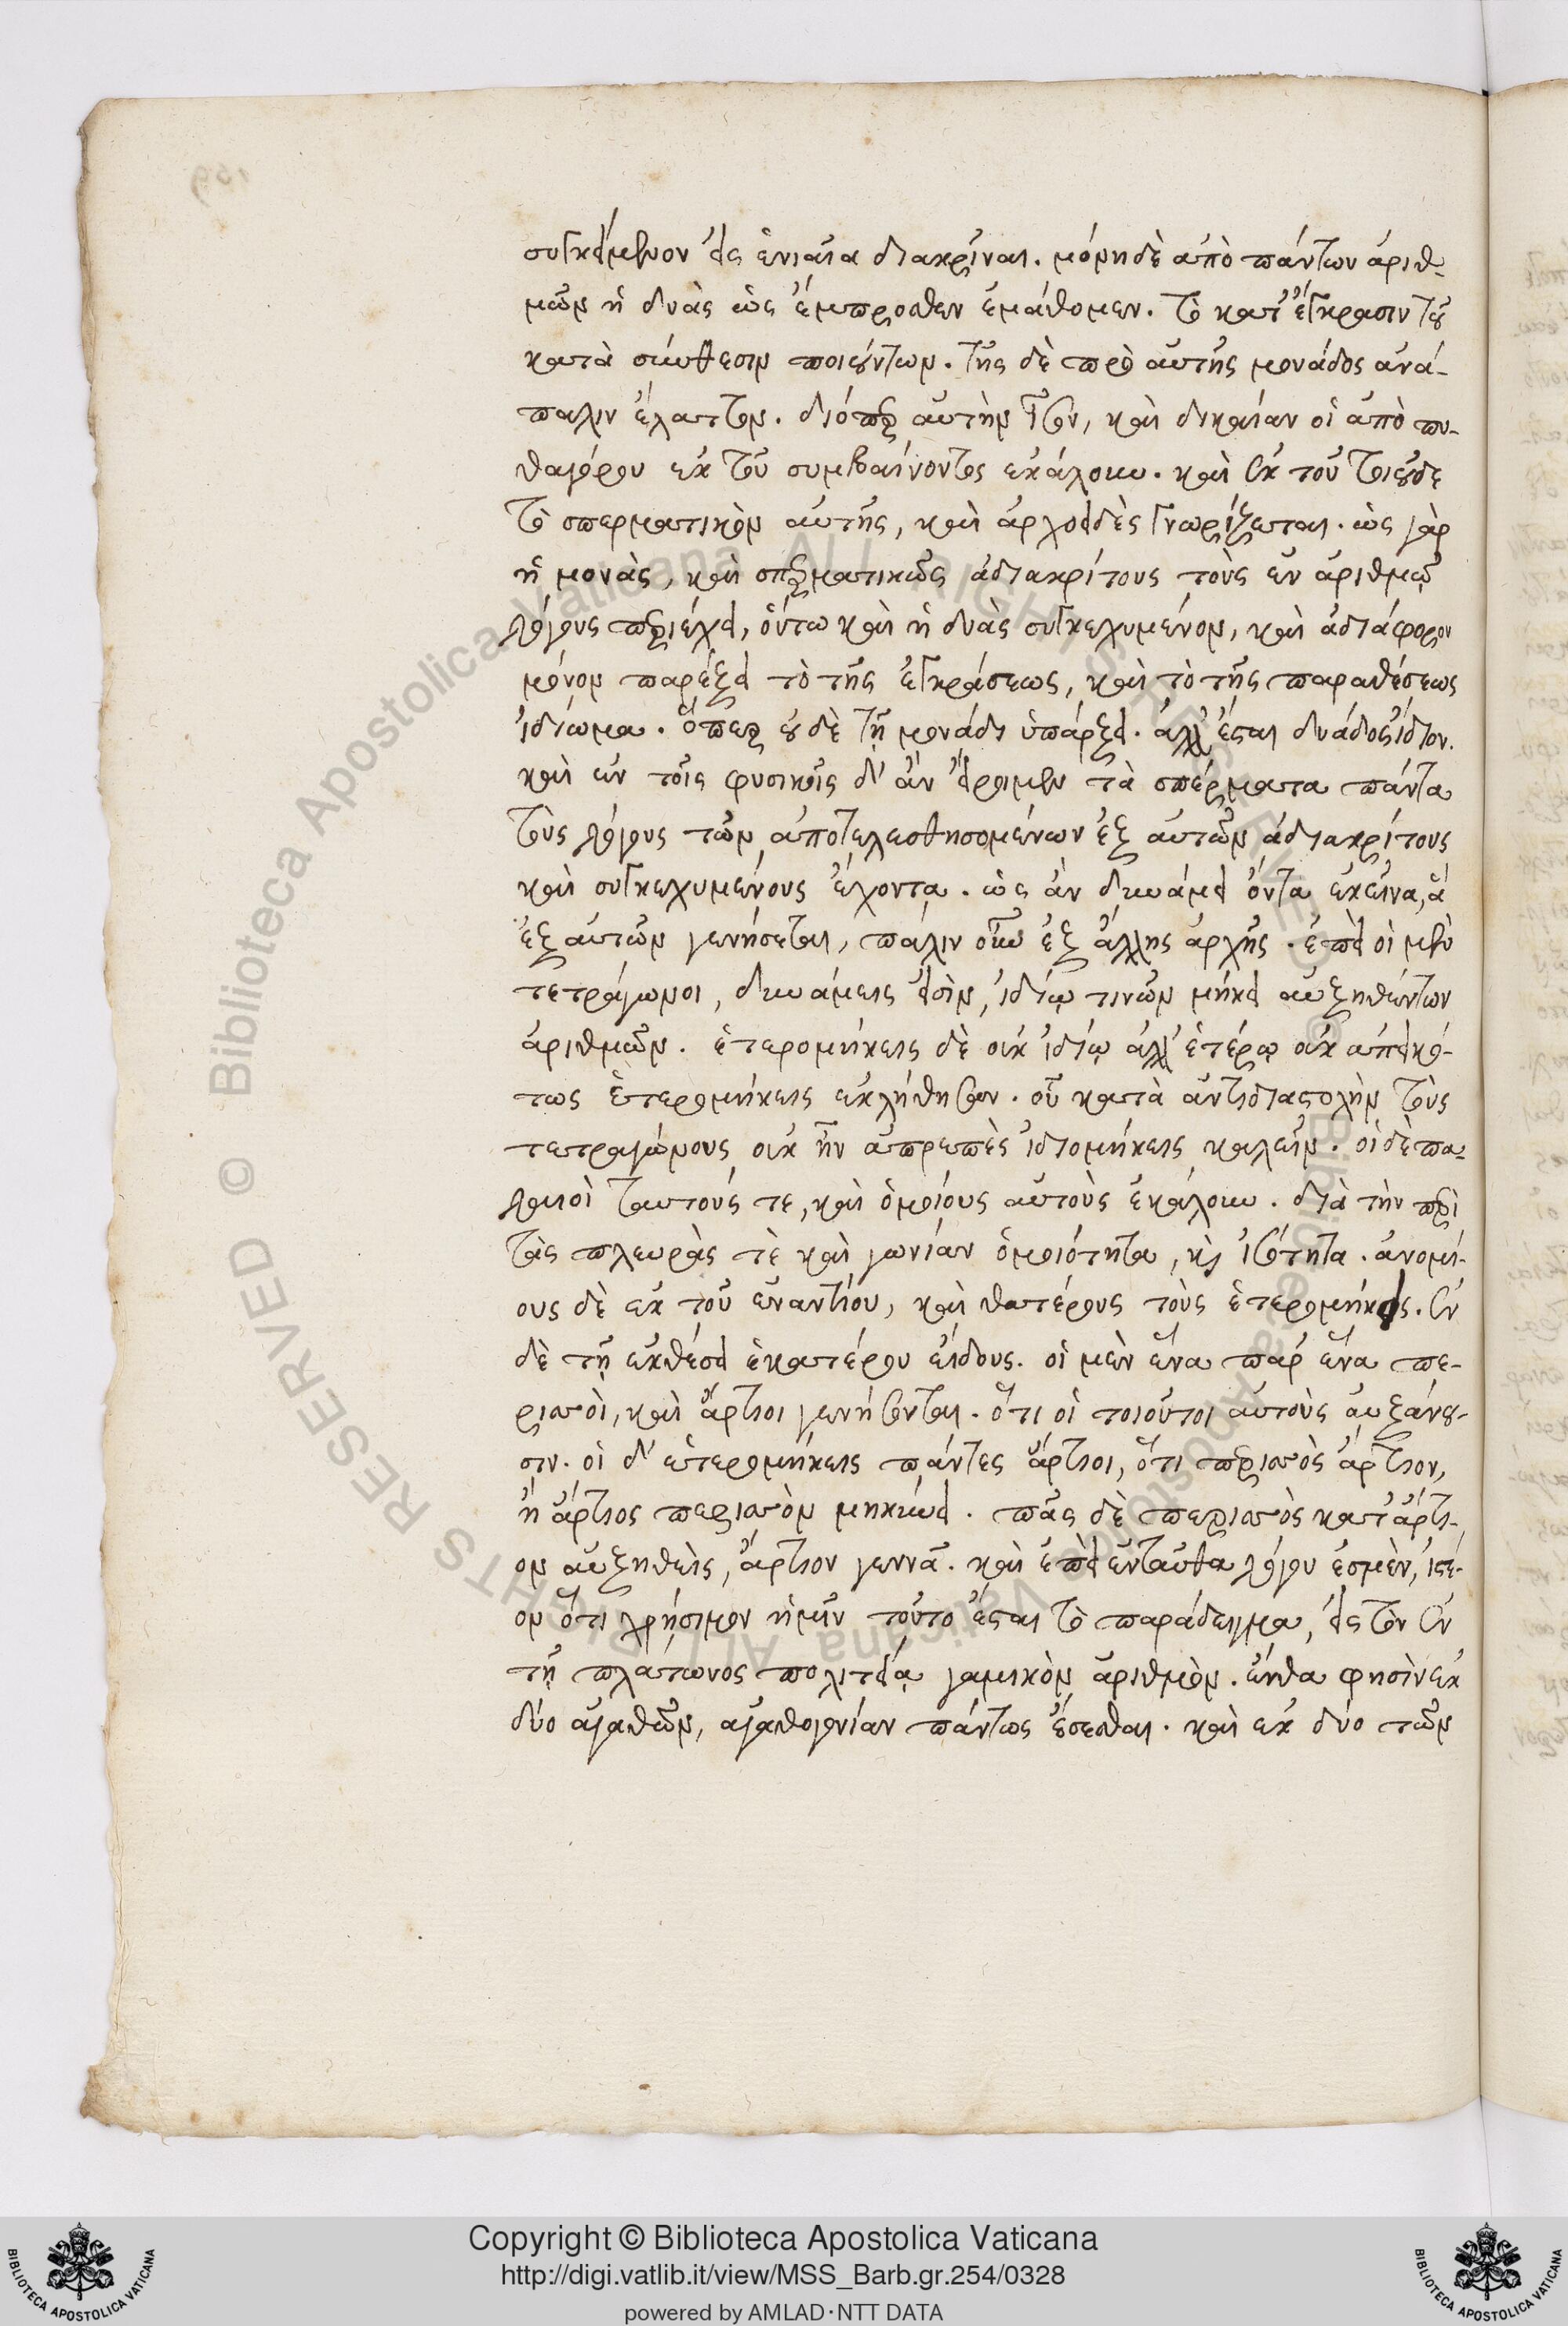 συγκείμενον εἰς ἑνιαῖα διακρῖναι. μόνη δὲ ἀπὸ πάντων ἀριθ-
μῶν ἡ δυὰς ὡς ἔμπροσθεν ἐμάθομεν. τὸ κατ' ἔγκρασιν τοῦ
κατὰ σύνθεσιν ποιούντων. τῆς δὲ πρὸ αὐτῆς μονάδος ἀνά-
παλιν ἔλαττον. διόπερ αὐτὴν ἴσον, καὶ δικαίαν οἱ ἀπὸ πυ-
θαγόρου ἐκ τοῦ συμβαίνοντος ἐκάλουν. καὶ ἐκ τοῦ τοιοῦδε
τὸ σπερματικὸν αὐτῆς, καὶ ἀρχοειδὲς γνωρίζεται. ὡς γὰρ
ἡ μονὰς, καὶ σπερματικῶς ἀδιακρίτους τοὺς ἐν ἀριθμῷ
λόγους περιέχει, οὕτω καὶ ἡ δυὰς συγκεχυμένον, καὶ ἀδιάφορον
μόνον παρέξει τὸ τῆς ἐγκράσεως, καὶ τὸ τῆς παραθέσεως
ἰδίωμα. ὅπερ οὐδὲ τῇ μονάδι ὑπάρξει. ἀλλ' ἔσται δυάδος ἴδιον.
καὶ ἐν τοῖς φυσικοῖς δ' ἂν εὕροιμεν τὰ σπέρματα πάντα
τοὺς λόγους τῶν ἀποτελεσθησομένων ἐξ αὐτῶν ἀδιακρίτους
καὶ συγκεχυμένους ἔχοντα. ὡς ἂν δυνάμει ὄντα ἐκεῖνα, ἃ
ἐξ αὐτῶν γενήσεται, πάλιν οὖν ἐξ ἄλλης ἀρχῆς. ἐπεὶ οἱ μὲν
τετράγωνοι, δυνάμεις εἰσὶν, ἰδίῳ τινῶν μήκει αὐξηθέντων
ἀριθμῶν. ἑτερομήκεις δὲ οὐκ ἰδίῳ ἀλλ' ἑτέρῳ οὐκ ἀπεικό-
τως ἑτερομήκεις ἐκλήθησαν. οὗ κατὰ ἀντιδιαστολὴν τοὺς
τετραγώνους οὐκ ἦν ἀπρεπὲς ἰδιομήκεις καλεῖν. οἱ δὲ πα-
λαιοὶ ταυτούς τε, καὶ ὁμοίους αὐτοὺς ἐκάλουν. διὰ τὴν περὶ
τὰς πλευρὰς τὲ καὶ γωνίαν ὁμοιότητα, κὶ ἰσότητα. ἀνομοί-
ους δὲ ἐκ τοῦ ἐναντίου, καὶ θατέρους τοὺς ἑτερομήκεις. ἐν
δὲ τῇ ἐκθέσει ἑκατέρου εἴδους. οἱ μὲν ἕνα παρ' ἕνα πε-
ρισσοὶ, καὶ ἄρτιοι γενήσονται. ὅτι οἱ τοιοῦτοι αὐτοὺς αὐξάνου-
σιν. οἱ δ' ἑτερομήκεις πάντες ἄρτιοι, ὅτι περισσὸς ἄρτιον,
ἢ ἄρτιος περισσὸν μηκύνει. πᾶς δὲ περισσὸς κατ' ἄρτι-
ον αὐξηθεὶς, ἄρτιον γεννᾷ. καὶ ἐπεὶ ἐνταῦθα λόγου ἐσμὲν, ἰστέ-
ον ὅτι χρήσιμον ἡμῖν τοῦτο ἔσται τὸ παράδειγμα, εἰς τὸν ἐν
τῇ πλάτωνος πολιτείᾳ γαμικὸν ἀριθμὸν. ἔνθα φησὶν ἐκ
δύο ἀγαθῶν, ἀγαθογονίαν πάντως ἔσεσθαι. καὶ ἐκ δύο τῶν
Copyright © Biblioteca Apostolica Vaticana
http://digi.vatlib.it/view/MSS_Barb.gr.254/0328
powered by AMLAD·NTT DATA